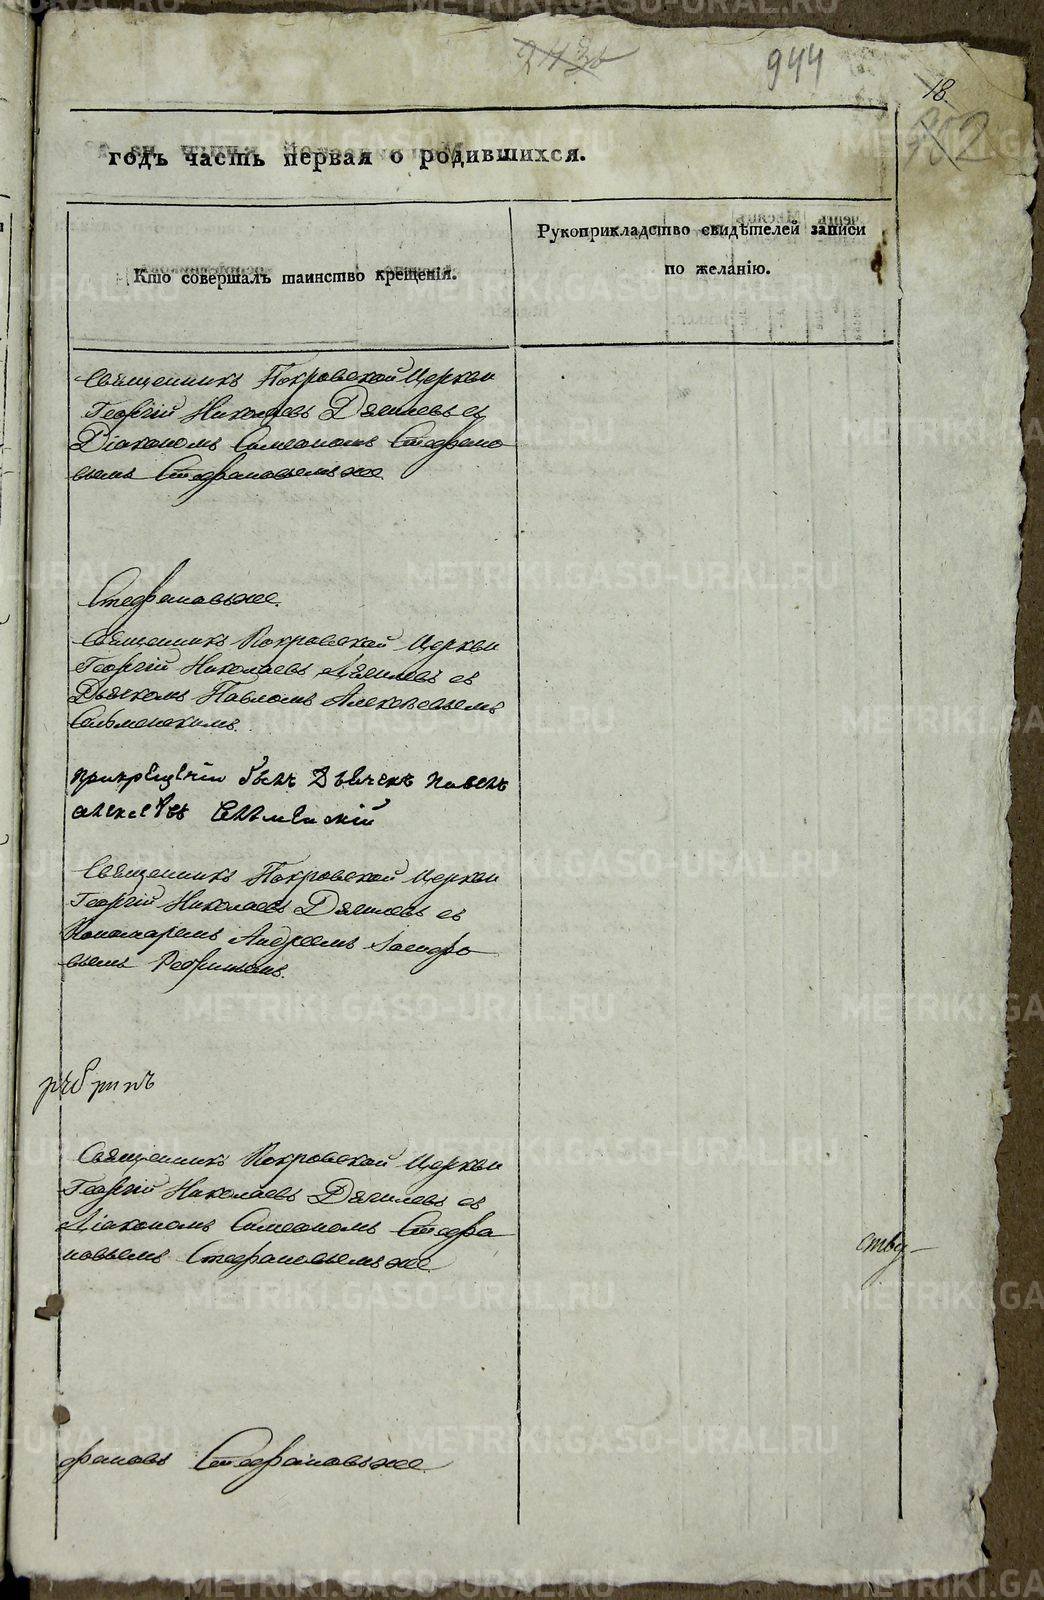 944
18
902
годъ часть первая о родившихся.
Кто совершалъ таинство крещенія.
Рукоприкладство свидѣтелей записи
по желанію.
Священникъ Покровской Церкви
Георгій Николаевъ Дягилевъ съ
Діакономъ Симеономъ Стефано
вымъ Стефановымъ же
Стефановъ же.
Священникъ Покровской Церкви
Георгій Николаевъ Дягилевъ съ
Дьячкомъ Павломъ Алексѣевымъ
прикрещеніи былъ Дьячекъ Павелъ
Священникъ Покровской Церкви
Георгій Николаевъ Дягилевъ съ
Пономаремъ Андреемъ
вымъ
Священникъ Покровской Церкви
Георгій Николаевъ Дягилевъ съ
Діакономъ Симеономъ Стефа
новымъ Стефановымъ же
ству
фановъ Стефановъ же
METRIKI.GASO-URAL.RU